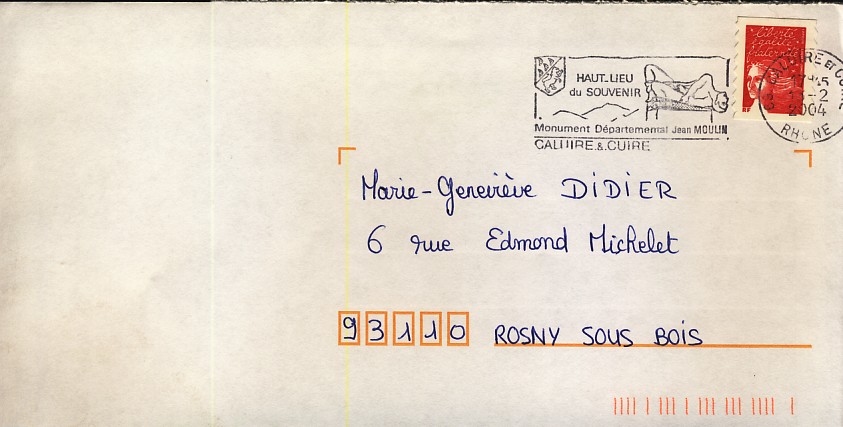 liberté
égalité
fraternité
RF
HAUT-LIEU
du SOUVENIR
Monument Départemental Jean MOULIN
CALUIRE & CUIRE
CALUIRE ET CUIRE
17H45
13-2
2004
RHONE
Marie-Geneviève DIDIER
6 rue Edmond Michelet
93110 ROSNY SOUS BOIS